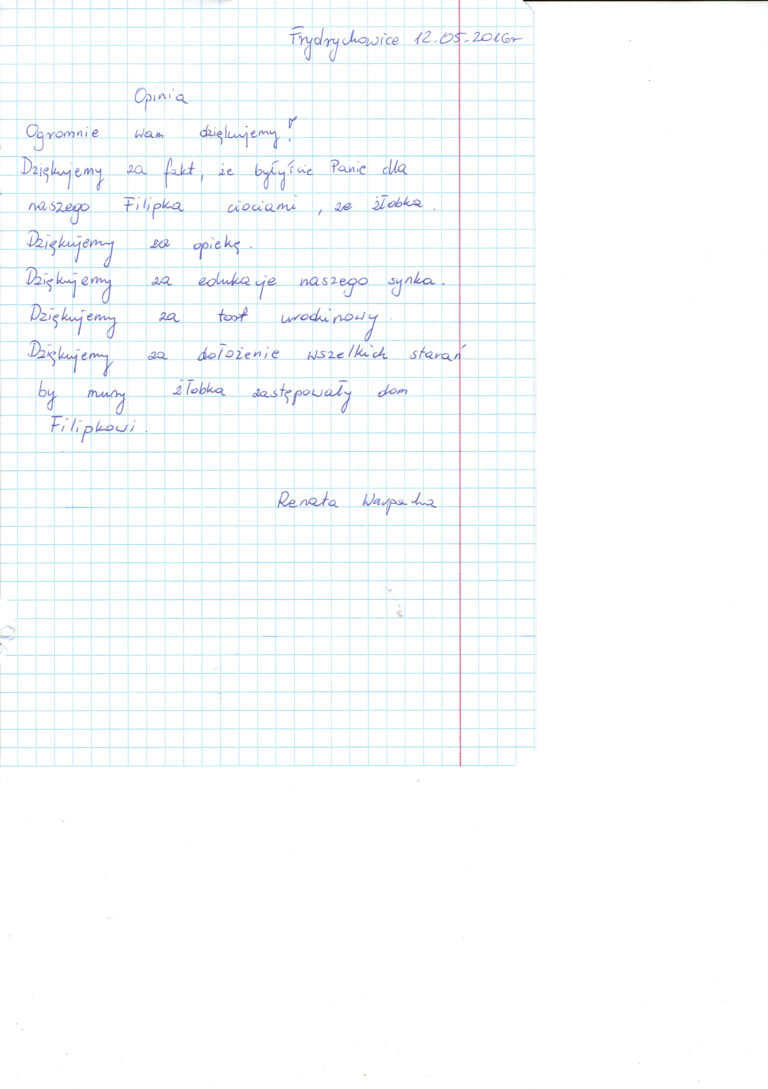 Frydrychowice 12.05.2016r
Opinia
Ogromnie wam dziękujemy!
Dziękujemy za fakt, że byłyście Panie dla
naszego Filipka ciociami, ze żłobka.
Dziękujemy za opiekę.
Dziękujemy za edukacje naszego synka.
Dziękujemy za tort urodzinowy.
Dziękujemy za dołożenie wszelkich starań
by mury żłobka zastępowały dom
Filipkowi.
Renata